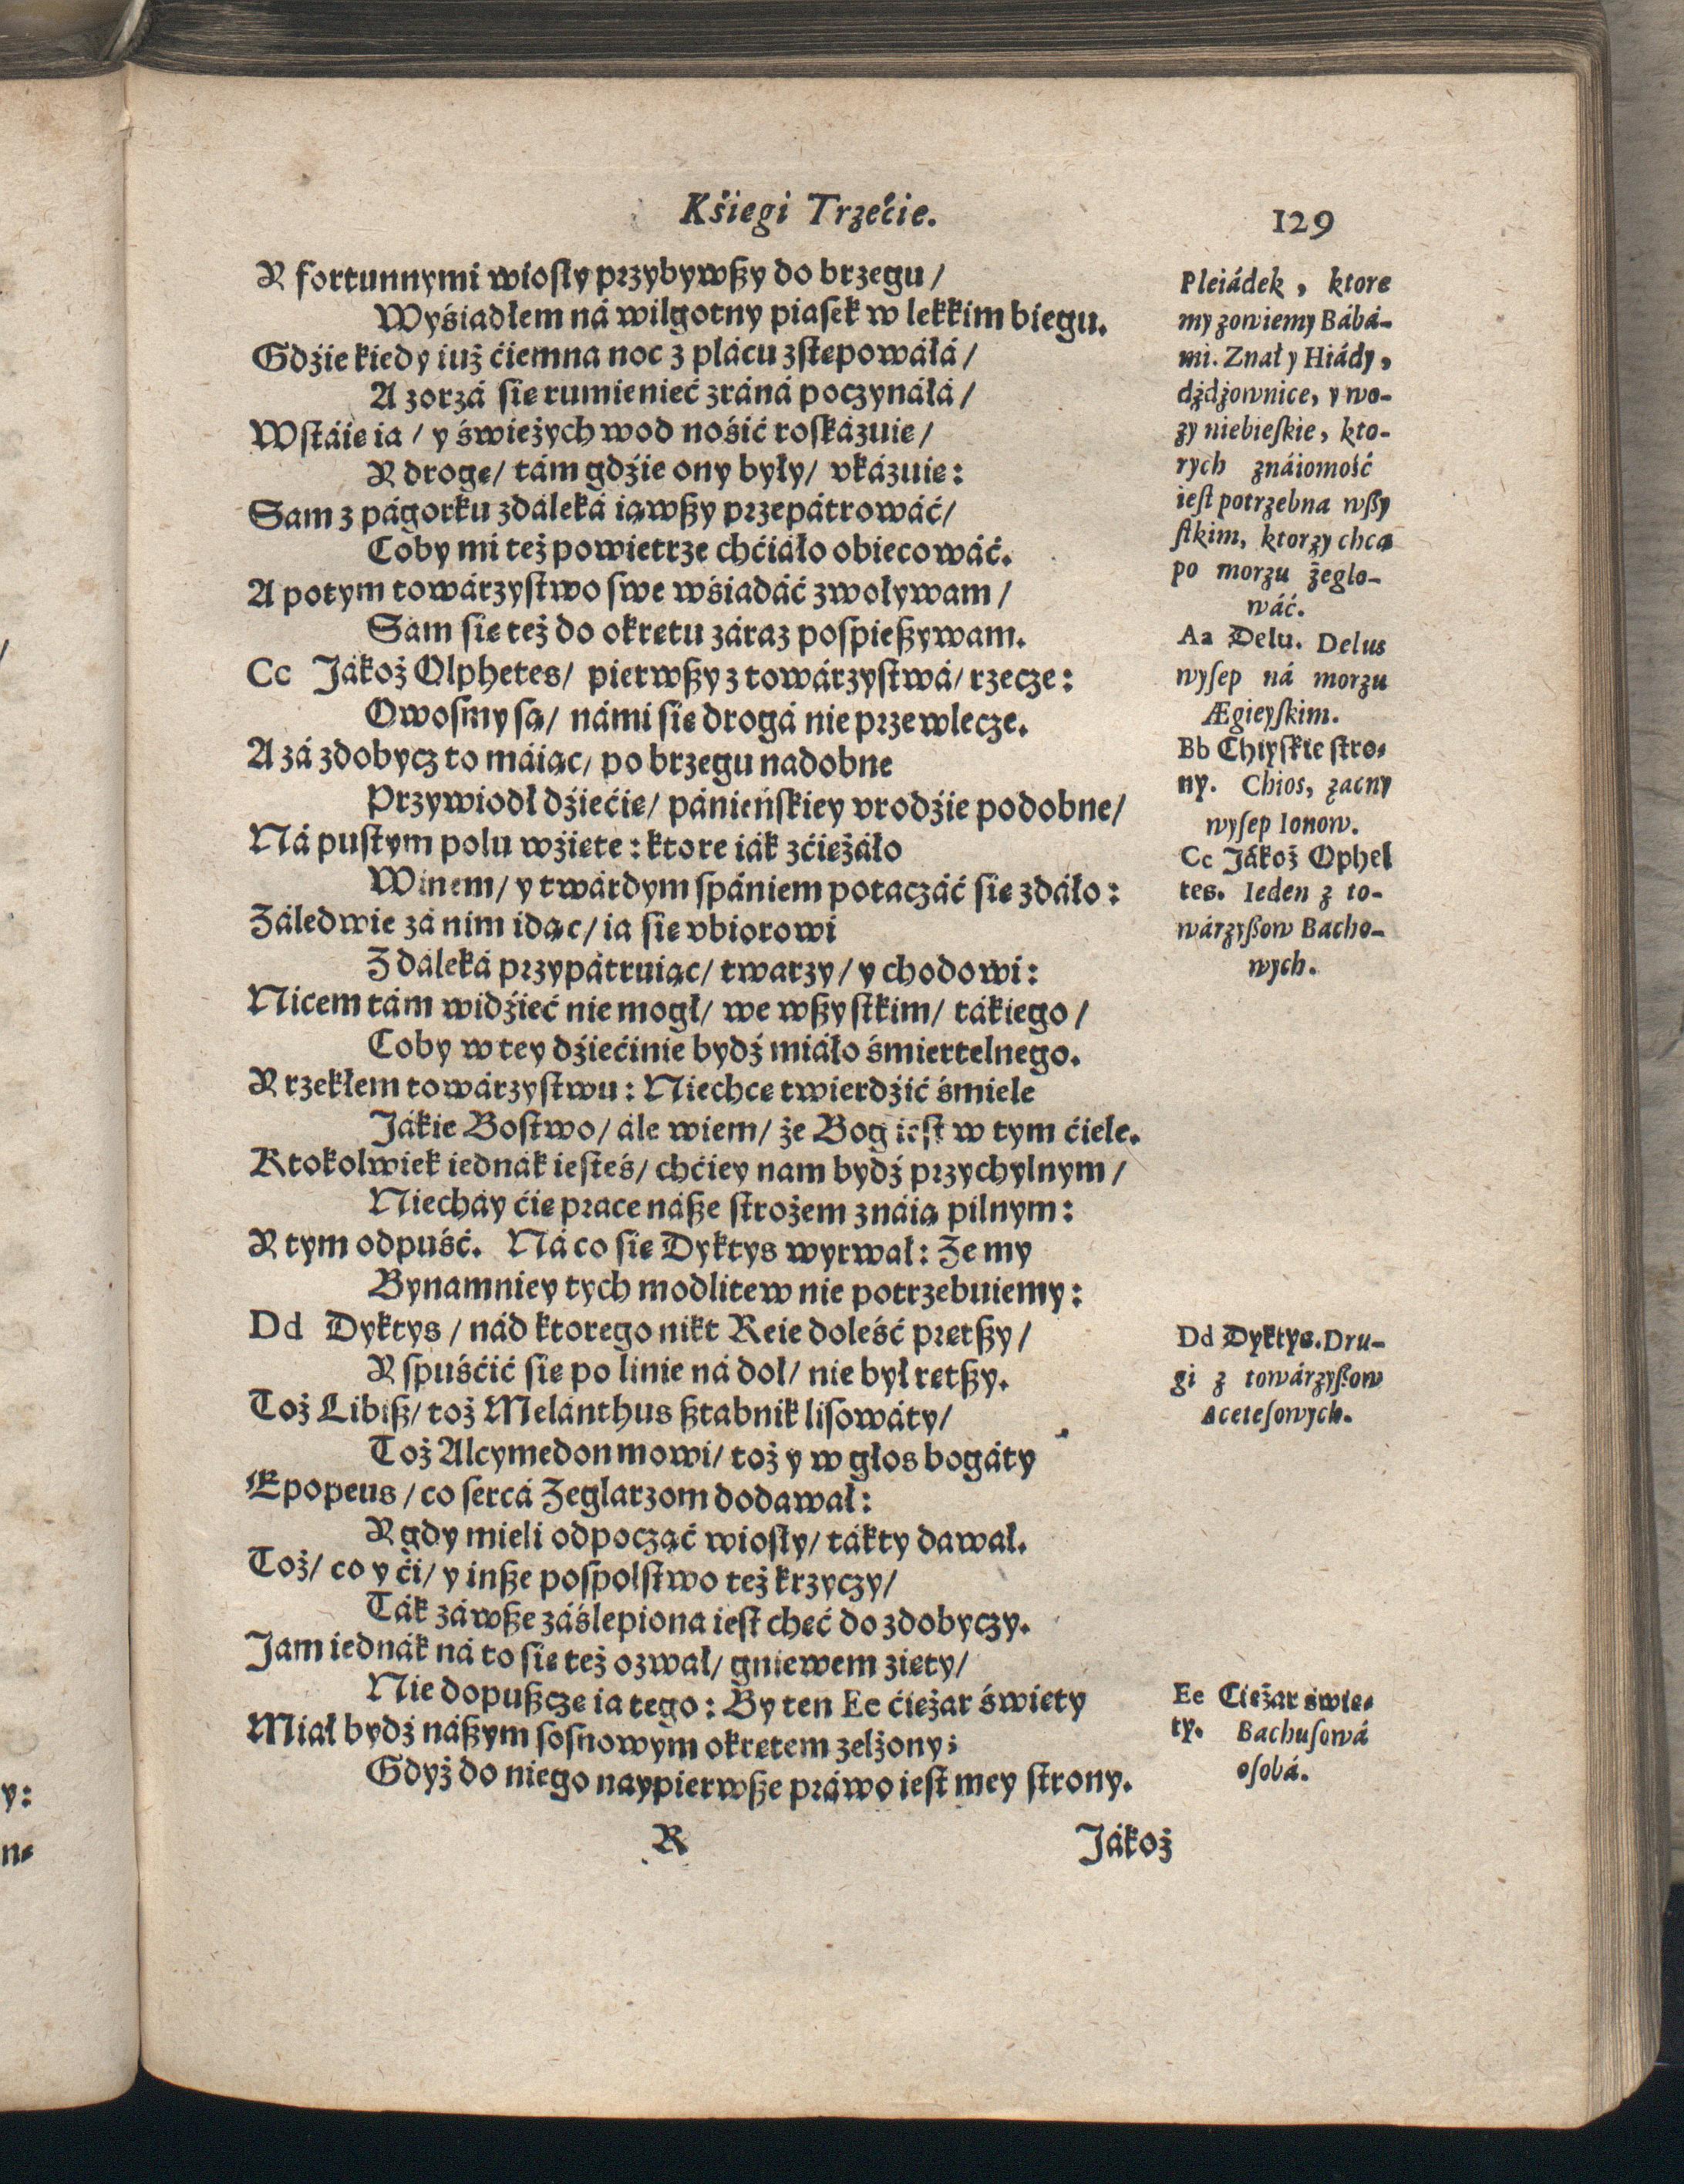 Kśiegi Trzećie.
129
Y fortunnymi wiosły przybywſzy do brzegu /
Wyśiadłem ná wilgotny piaſek w lekkim biegu.
Gdźie kiedy iuż ćiemna noc z plácu zſtepowáłá /
A zorzá ſie rumienieć zráná poczynáłá /
Wſtáie ia / y świeżych wod nośić roſkázuie /
Y droge / tám gdźie ony były / vkázuie:
Sam z págorku zdáleká iąwſzy przepátrowáć /
Coby mi też powietrze chćiáło obiecowáć.
A potym towárzyſtwo ſwe wśiadáć zwoływam /
Sam ſie też do okretu záraz poſpieſzywam.
Cc Jákoż Olphetes / pierwſzy z towárzyſtwá / rzecze:
Owoſmy ſą / námi ſie drogá nie przewlecze.
A zá zdobycz to máiąc / po brzegu nadobne
Przywiodł dźiećie / pánieńſkiey vrodźie podobne /
Ná puſtym polu wźiete: ktore iák zćieżáło
Winem / y twárdym ſpániem potaczáć ſie zdáło:
Záledwie zá nim idąc / ia ſie vbiorowi
Z dáleká przypátruiąc / twarzy / y chodowi:
Nicem tám widźieć nie mogł / we wſzyſtkim / tákiego /
Coby w tey dźiećinie bydź miáło śmiertelnego.
Y rzekłem towárzyſtwu: Niechce twierdźić śmiele
Jákie Boſtwo / ále wiem / że Bog ieſt w tym ćiele.
Ktokolwiek iednák ieſteś / chćiey nam bydź przychylnym /
Niechay ćie prace náſze ſtrożem znáią pilnym:
Y tym odpuść. Ná co ſie Dyktys wyrwał: Że my
Bynamniey tych modlitew nie potrzebuiemy:
Dd Dyktys / nád ktorego nikt Reie doleść pretſzy /
Y ſpuśćić ſie po linie ná doł / nie był retſzy.
Toż Libiſz / toż Melánthus ſztabnik liſowáty /
Toż Alcymedon mowi / toż y w głos bogáty
Epopeus / co ſercá Żeglarzom dodawał:
Y gdy mieli odpocząć wioſły / tákty dawał.
Toż / co y ći / y inſze poſpolſtwo też krzyczy /
Ták záwſze záślepiona ieſt cheć do zdobyczy.
Jam iednák ná to ſie też ozwał / gniewem ziety /
Nie dopuſzcze ia tego: By ten Ee ćieżar świety
Miał bydź náſzym ſoſnowym okretem zelżony;
Gdyż do niego naypierwſze práwo ieſt mey ſtrony.
R
Jákoż
Pleiádek, ktore
my zowiemy Bábá-
mi. Znał y Hiády,
dżdżownice, y wo-
zy niebieſkie, kto-
rych znáiomość
ieſt potrzebna wſzy
ſtkim, ktorzy chcą
po morzu żeglo-
wáć.
Aa Delu. Delus
wyſep ná morzu
Ægieyſkim.
Bb Chiyſkie ſtro-
ny. Chios, zacny
wyſep Ionow.
Cc Jákoż Ophel
tes. Ieden z to-
wárzyſzow Bacho-
wych.
Dd Dyktys. Dru-
gi z towárzyſzow
Aceteſowych.
Ee Ciężar świe-
ty. Bachuſowá
oſobá.